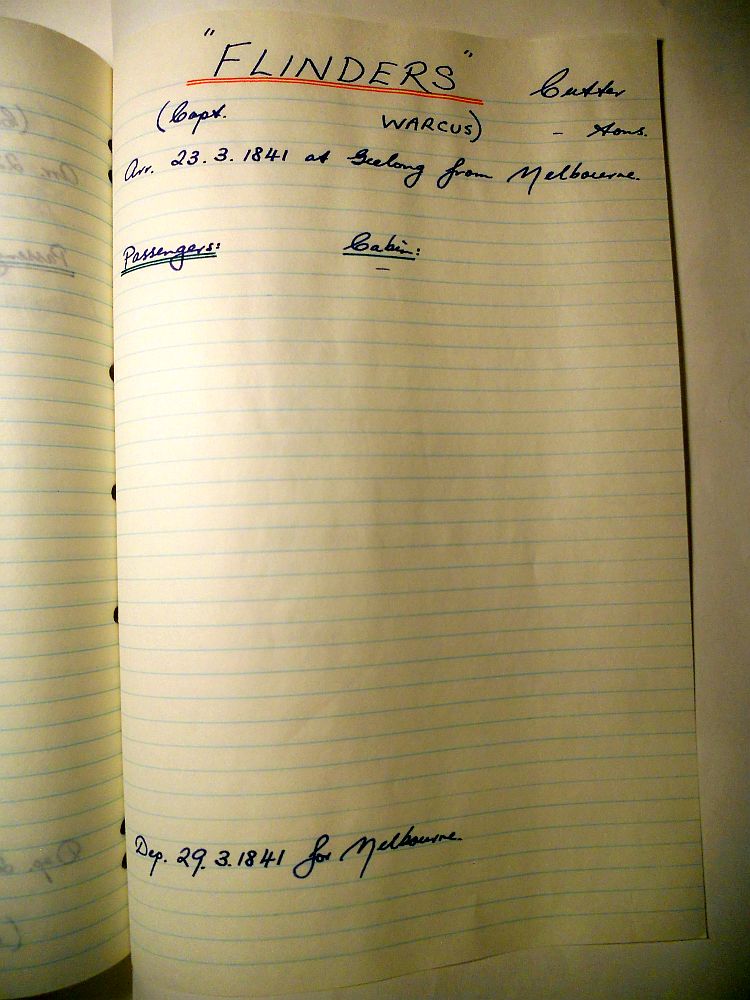 "FLINDERS" Cutter
(Capt. WARCUS) - tons.
Arr. 23.3.1841 at Geelong from Melbourne.
Passengers: Cabin:
-
Dep. 29.3.1841 for Melbourne.